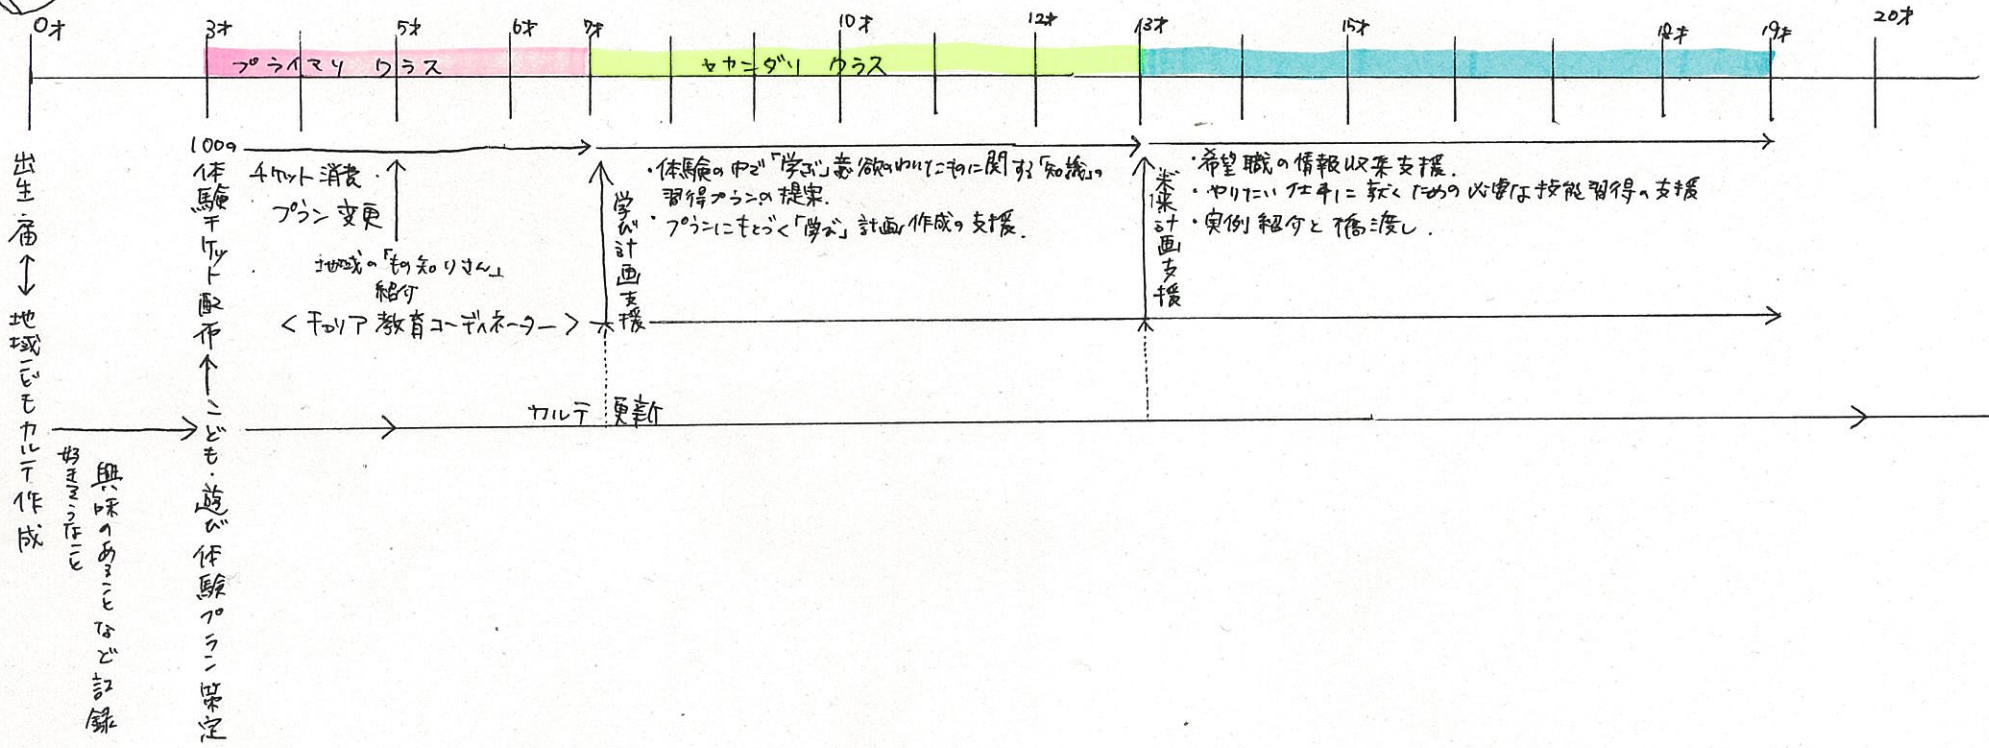 0才
3才
5才
6才
7才
10才
12才
13才
15才
18才
19才
20才
プライマリ クラス
セカンダリ クラス
出生届↔地域こどもカルテ作成
好きそうなこと
興味のあることなど記録
100の体験チケット配布←こども・遊び体験プラン策定
チケット消費・
プラン変更
地域の「もの知りさん」
紹介
<キャリア教育コーディネーター>
学び計画支援
・体験の中で「学ぶ」意欲のわいたものに関する「知識」の
習得プランの提案.
・プランにもとづく「学ぶ」計画作成の支援.
未来計画支援
・希望職の情報収集支援.
・やりたい仕事に就くための必要な技能習得の支援
・実例紹介と橋渡し.
カルテ更新